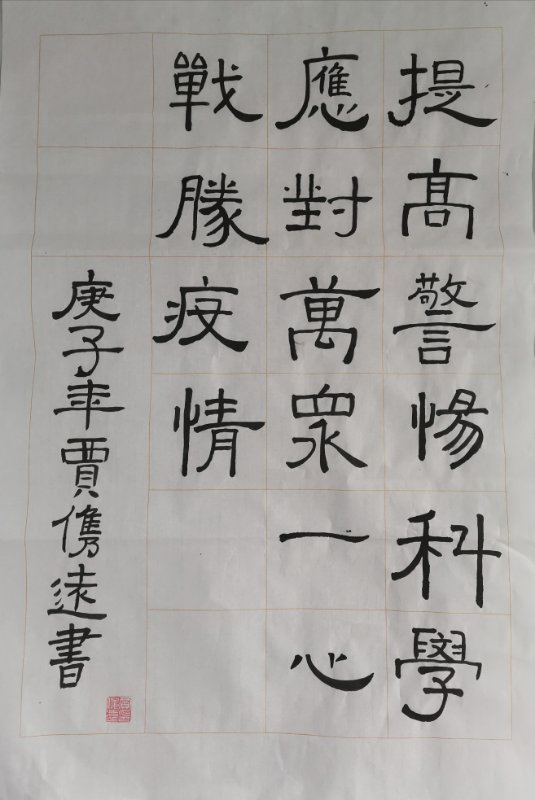 提髙警惕科學
應對萬衆一心
戰勝疫情
庚子年賈儁遠書